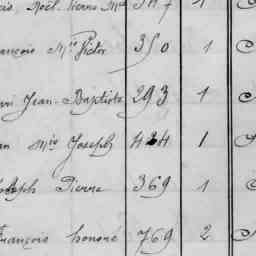 Noël Pierre Mie 347 1
François Mie Victor 350 1
Jean-Baptiste 293 1
Mie Joseph 424 1
Joseph Pierre 369 1
François honoré 769 2